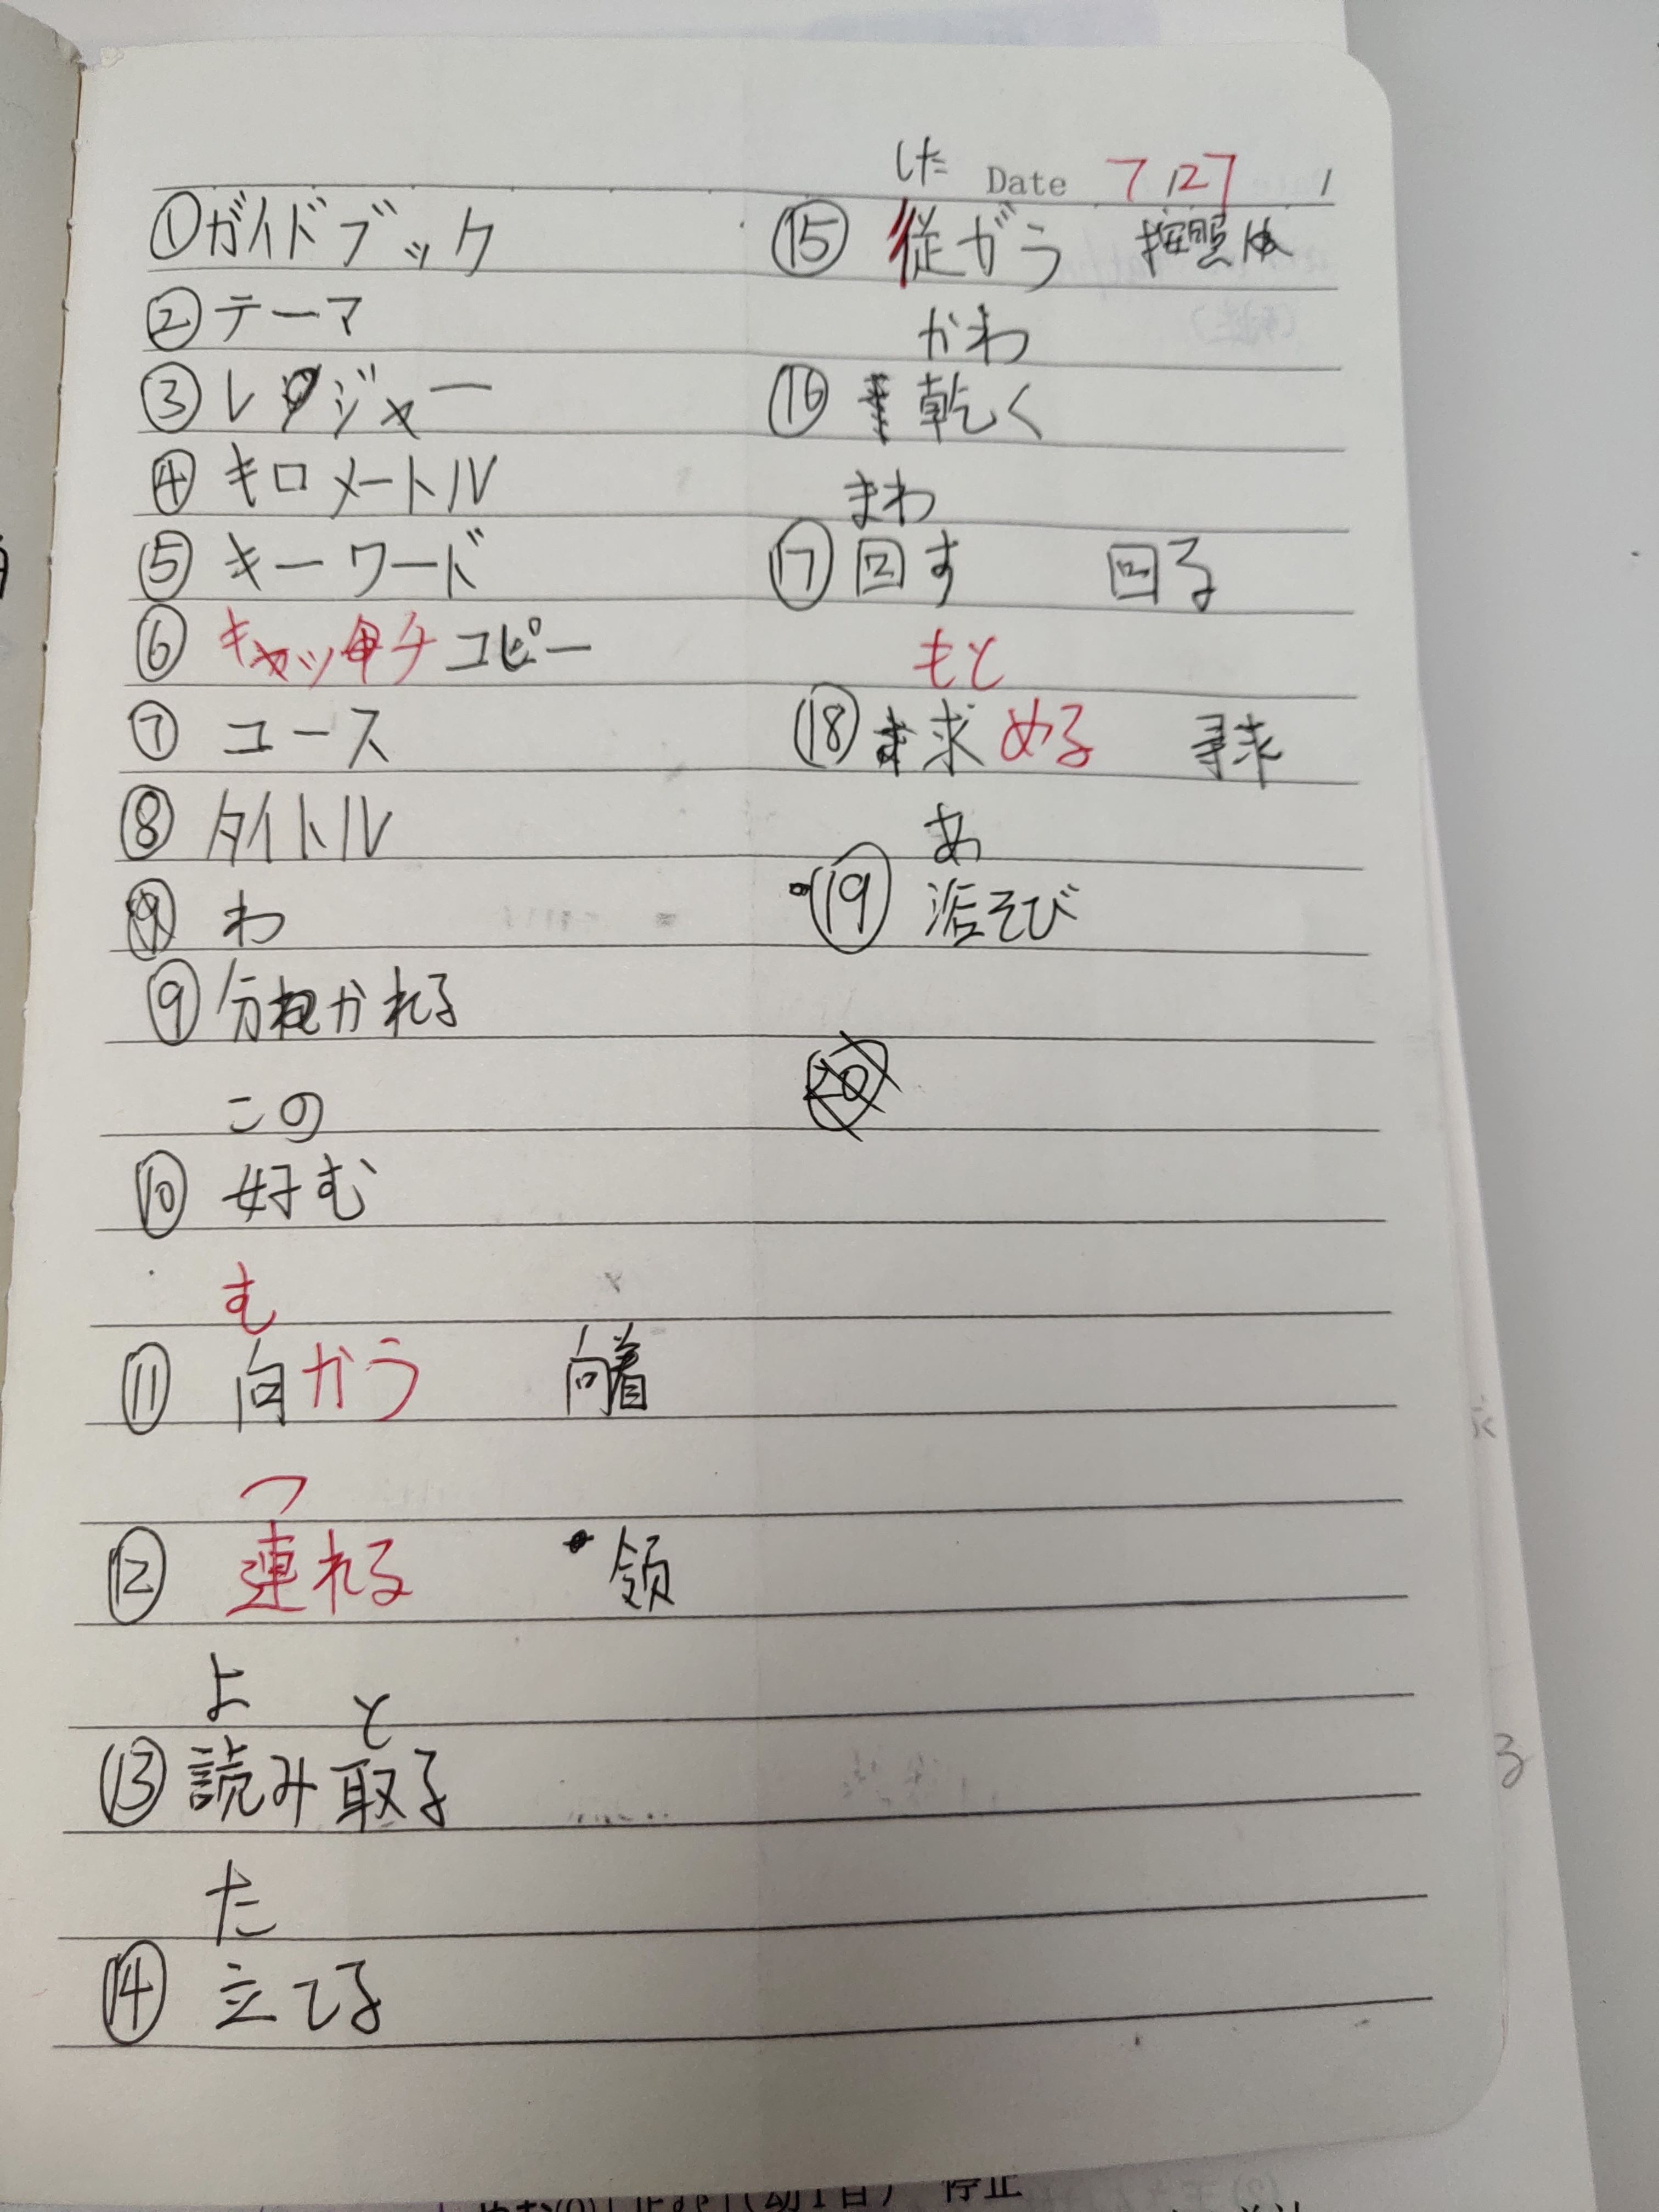 ①ガイドブック
②テーマ
③レジャー
④キロメートル
⑤キーワード
⑥キャッチコピー
⑦コース
⑧タイトル
わ
⑨分かれる
この
⑩好む
む
⑪向かう 向着
つ
⑫連れる 领
よ と
⑬読み取る
た
⑭立てる
した Date 7/27 /
⑮従がう 按照
かわ
⑯乾く
まわ
⑰回す 回る
もと
⑱求める 寻求
あ
⑲そび
やむ(0) 止む (动1自) 停止